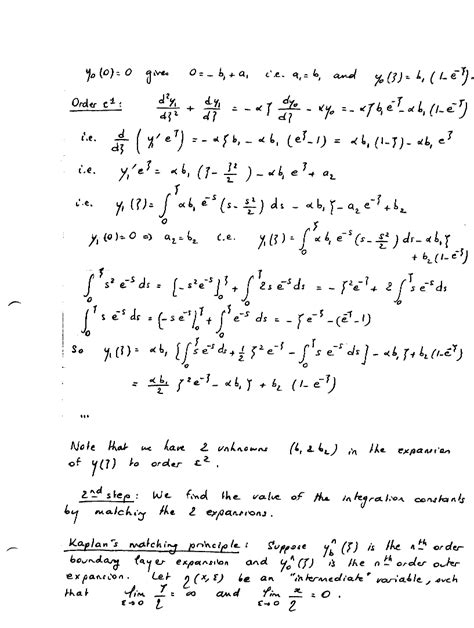 y₀(0)=0 gives 0=-b₁+a₁ i.e. a₁=b₁ and y₀(ζ)=b₁(1-e^-ζ).
Order ε¹: d²y₁/dζ² + dy₁/dζ = -αζ dy₀/dζ - αy₀ = -αζb₁e^-ζ - αb₁(1-e^-ζ)
i.e. d/dζ (y₁'e^ζ) = -αζb₁ - αb₁(e^ζ-1) = αb₁(1-ζ) - αb₁e^ζ
i.e. y₁'e^ζ = αb₁(ζ-ζ²/2) - αb₁e^ζ + a₂
i.e. y₁(ζ) = ∫₀^ζ αb₁e^-s(s-s²/2) ds - αb₁ζ - a₂e^-ζ + b₂
y₁(0)=0 ⇒ a₂=b₂ i.e. y₁(ζ) = ∫₀^ζ αb₁e^-s(s-s²/2) ds - αb₁ζ
+ b₂(1-e^-ζ)
∫₀^ζ s²e^-s ds = [-s²e^-s]₀^ζ + ∫₀^ζ 2s e^-s ds = -ζ²e^-ζ + 2∫₀^ζ s e^-s ds
∫₀^ζ s e^-s ds = [-s e^-s]₀^ζ + ∫₀^ζ e^-s ds = -ζe^-ζ - (e^-ζ-1)
So y₁(ζ) = αb₁{∫₀^ζ s e^-s ds + ½ζ²e^-ζ - ∫₀^ζ s e^-s ds} - αb₁ζ + b₂(1-e^-ζ)
= αb₁/2 ζ²e^-ζ - αb₁ζ + b₂(1-e^-ζ)
...
Note that we have 2 unknowns (b₁ & b₂) in the expansion
of y(ζ) to order ε².
2nd step: We find the value of the integration constants
by matching the 2 expansions.
Kaplan's matching principle: Suppose y_b^n(ζ) is the nth order
boundary layer expansion and y_0^n(ζ) is the nth order outer
expansion. Let η(x,ε) be an "intermediate" variable, such
that lim ε→0 ζ/η = ∞ and lim ε→0 x/η = 0.